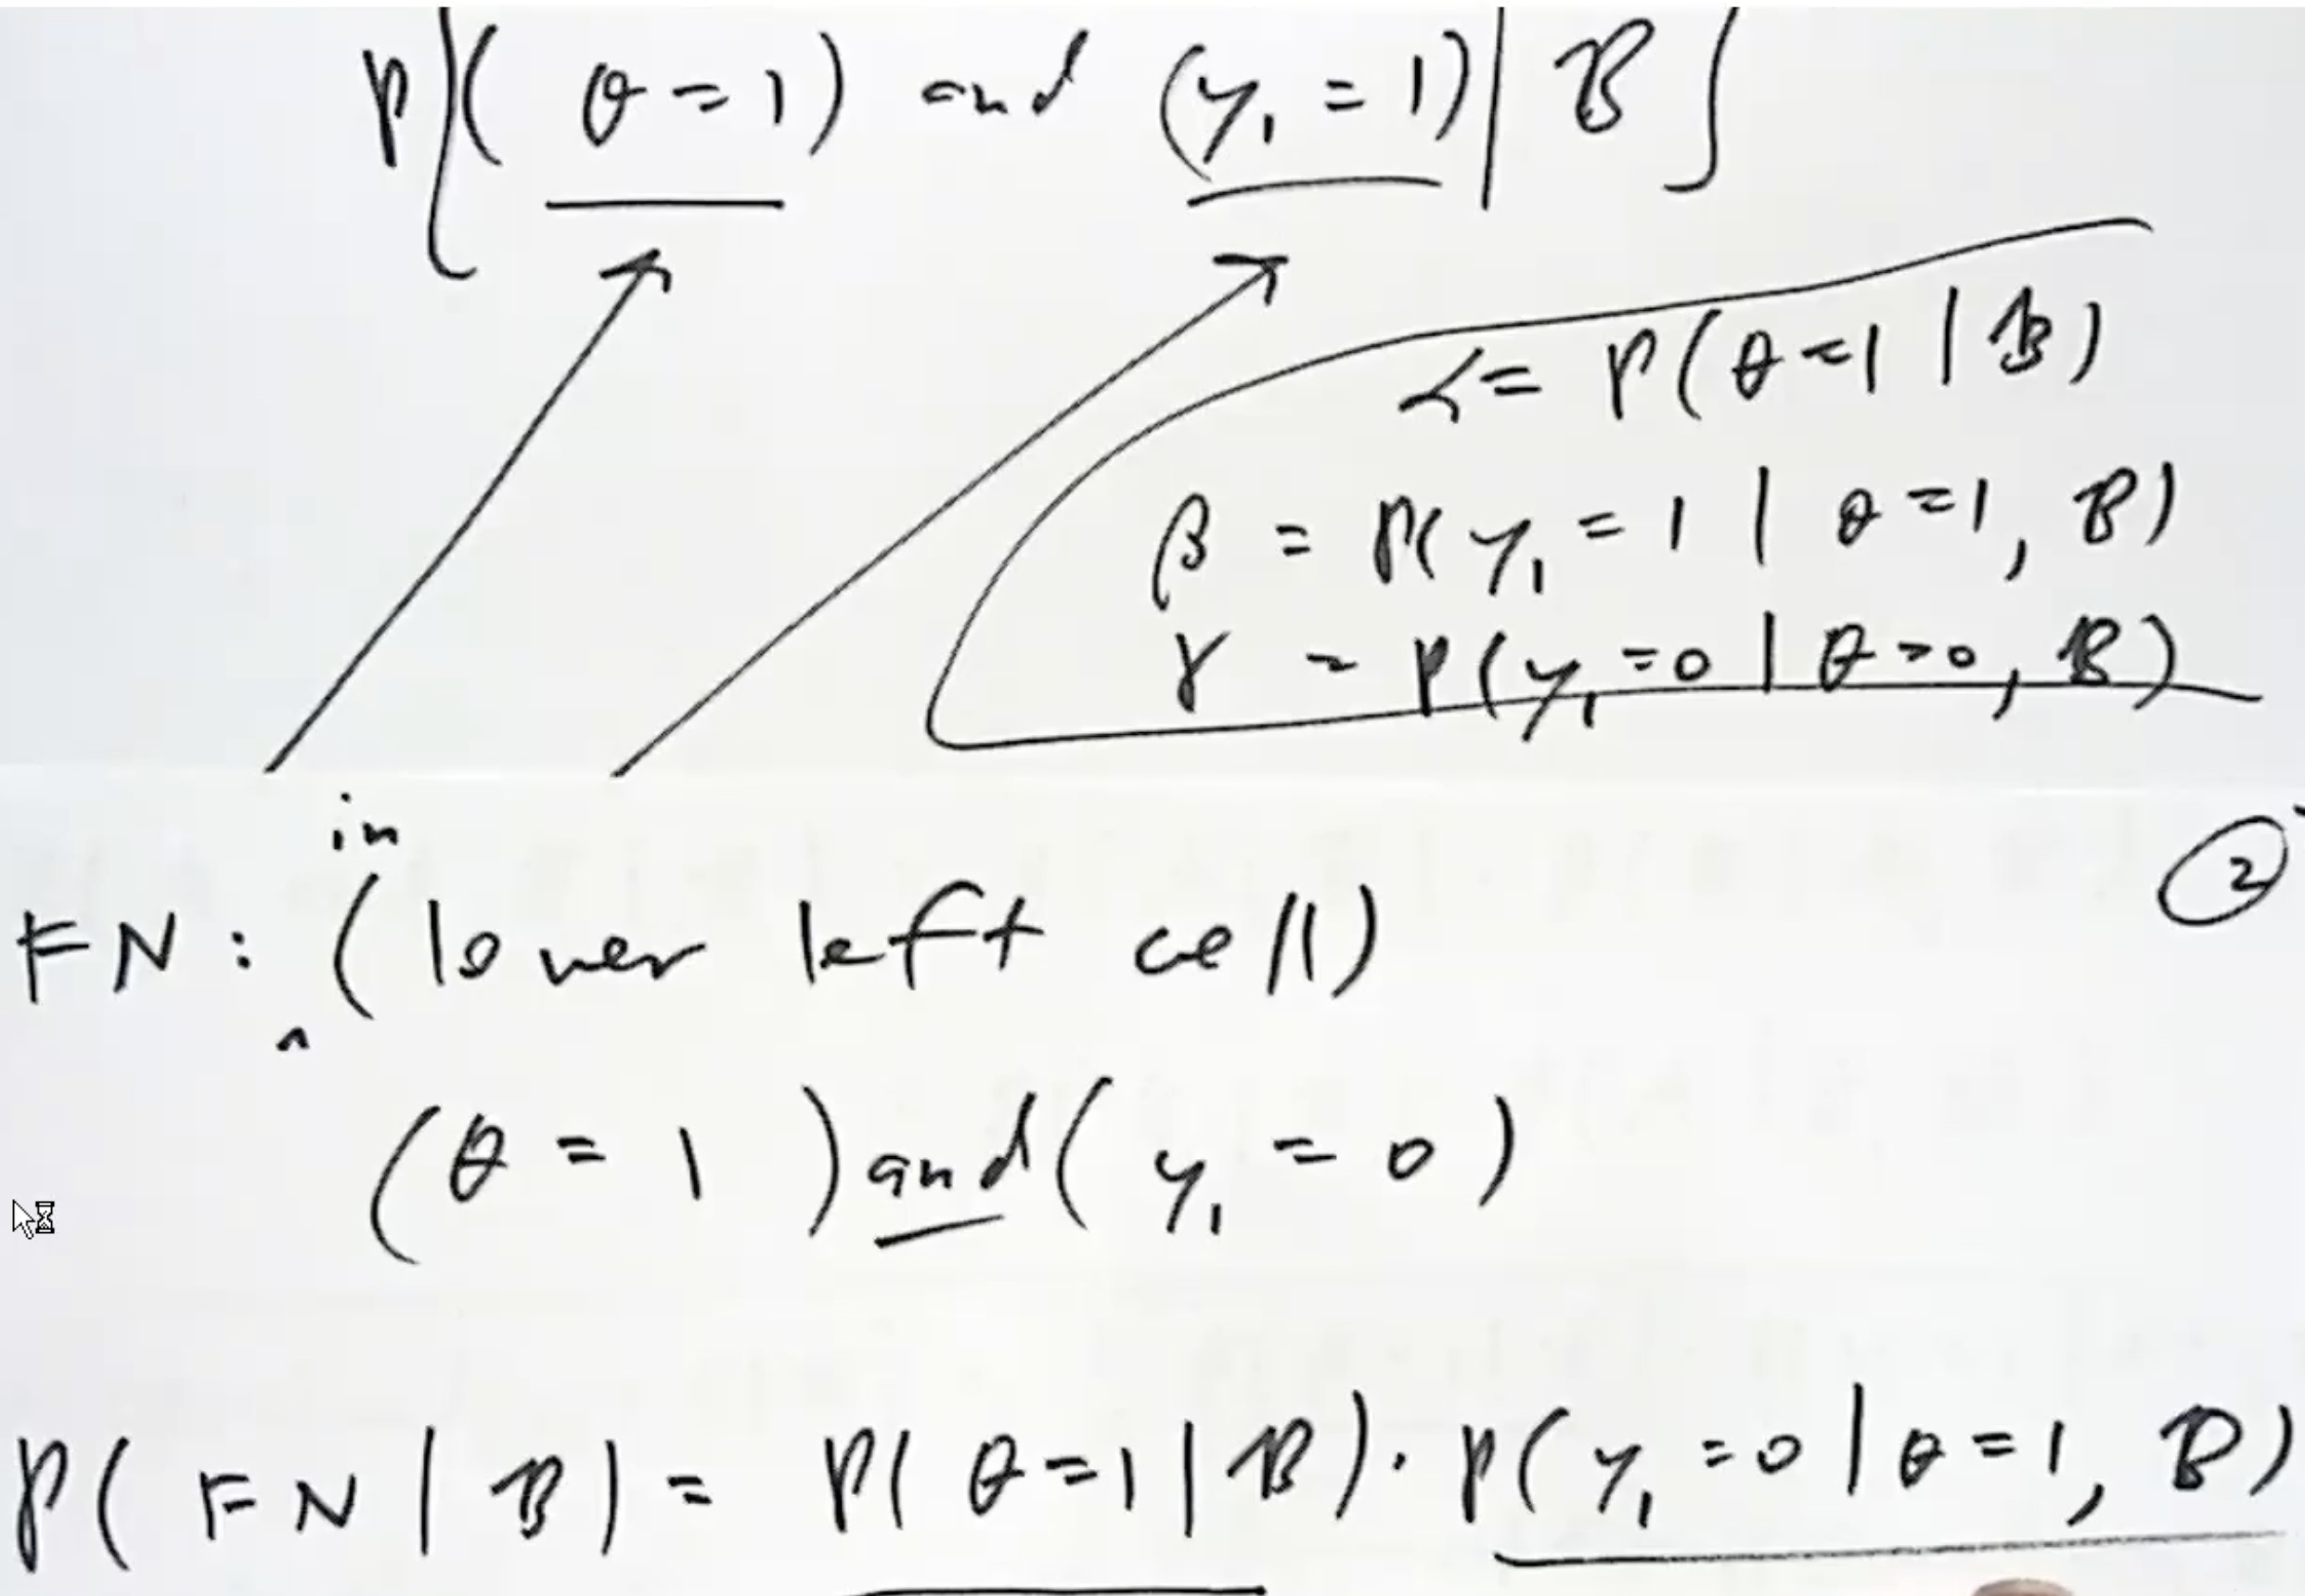 P[(θ = 1) and (y₁ = 1) | B]
α = P(θ = 1 | B)
β = P(y₁ = 1 | θ = 1, B)
γ = P(y₁ = 0 | θ = 0, B)
in
②
FN: (lower left cell)
^
(θ = 1) and (y₁ = 0)
P(FN | B) = P(θ = 1 | B) · P(y₁ = 0 | θ = 1, B)